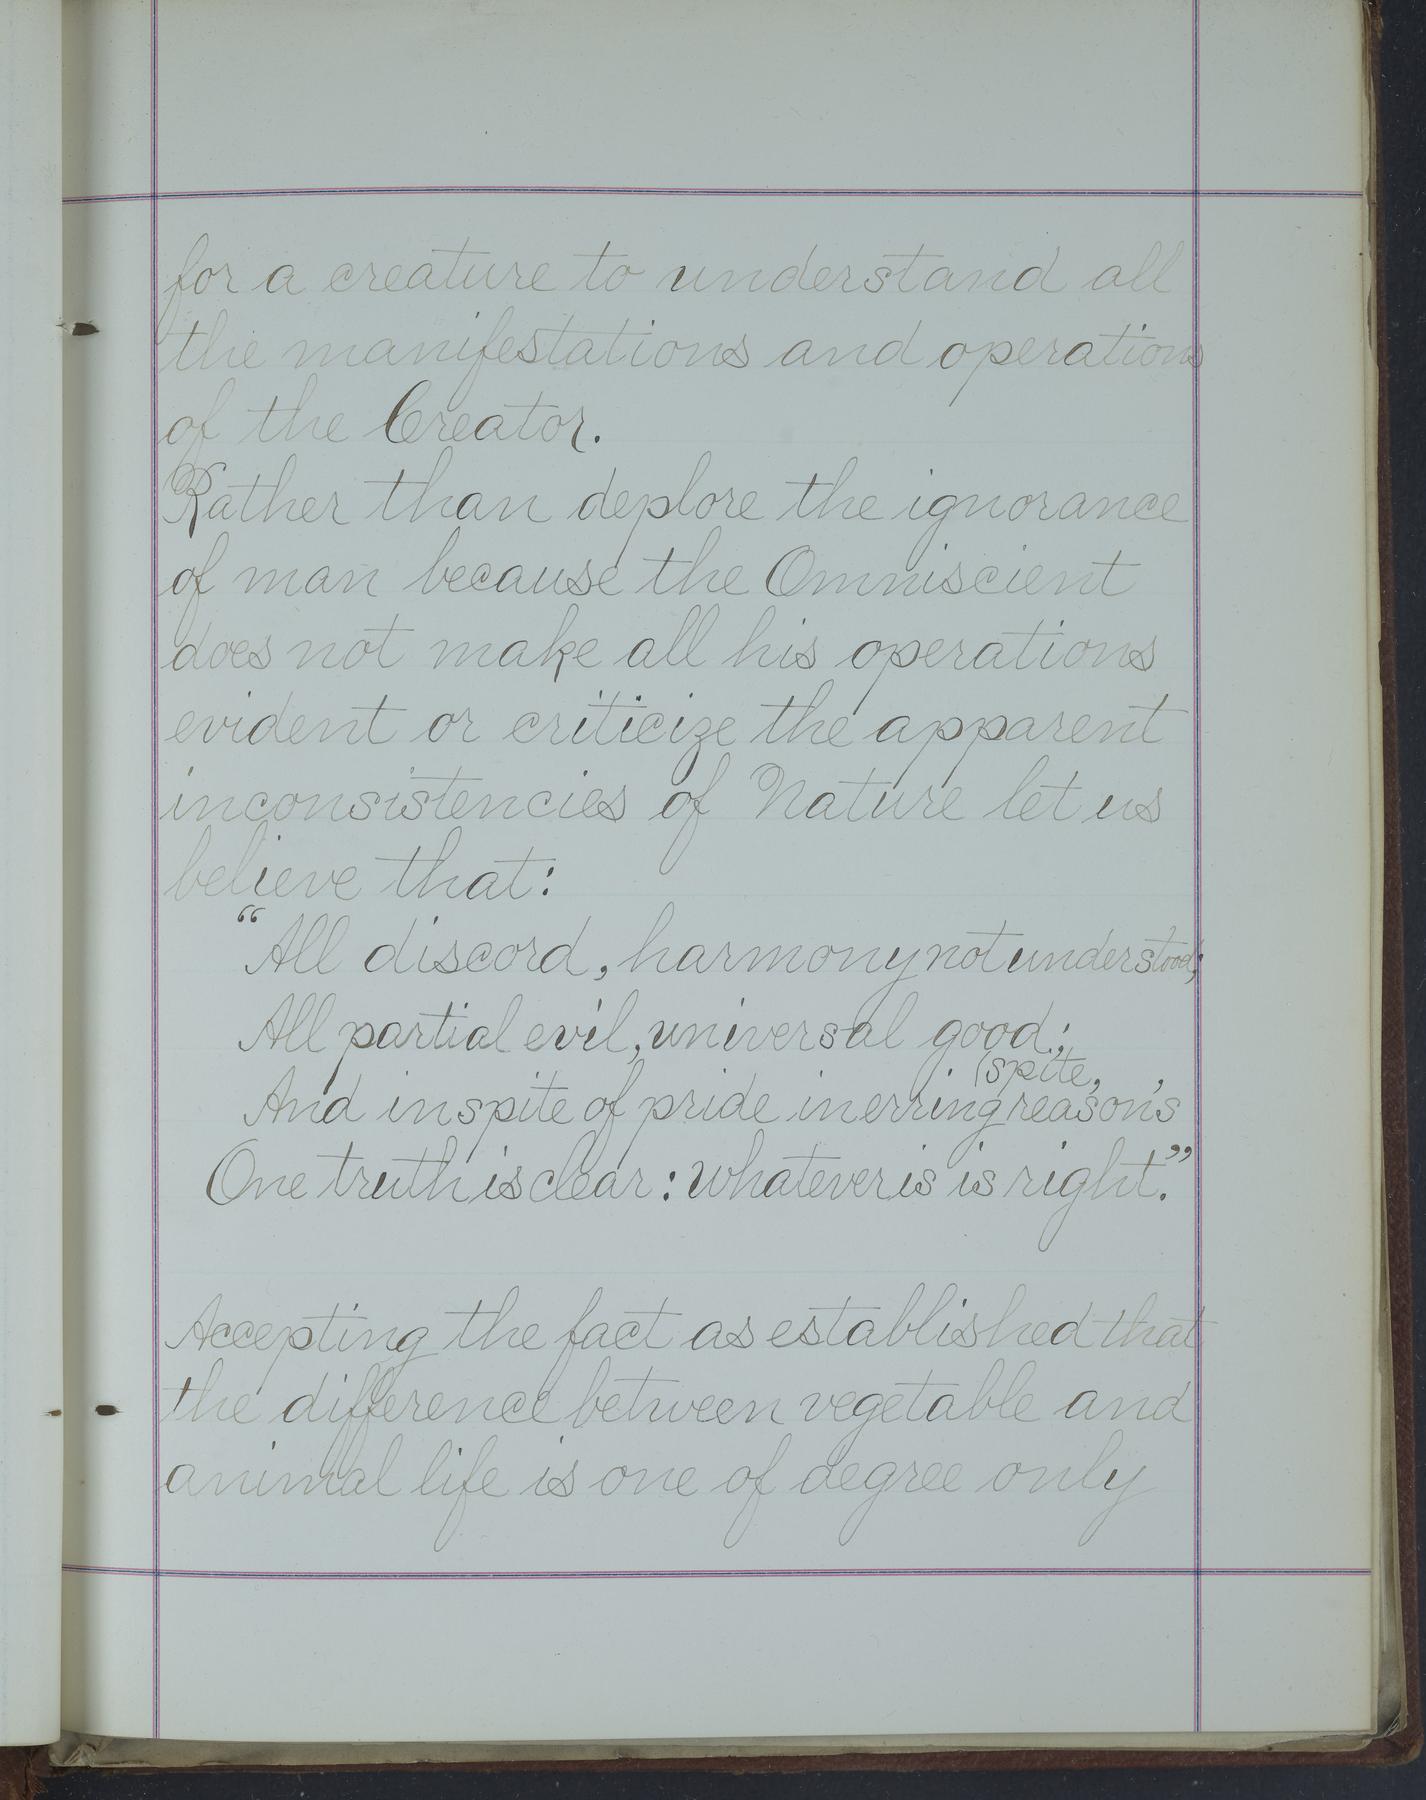 for a creature to understand all
the manifestations and operations
of the Creator.
Rather than deplore the ignorance
of man because the Omniscient
does not make all his operations
evident or criticize the apparent
inconsistencies of Nature let us
believe that:
“All discord, harmony not understood;
All partial evil, universal good;
(spite,
And in spite of pride in erring reason's
One truth is clear: whatever is is right.”
Accepting the fact as established that
the difference between vegetable and
animal life is one of degree only